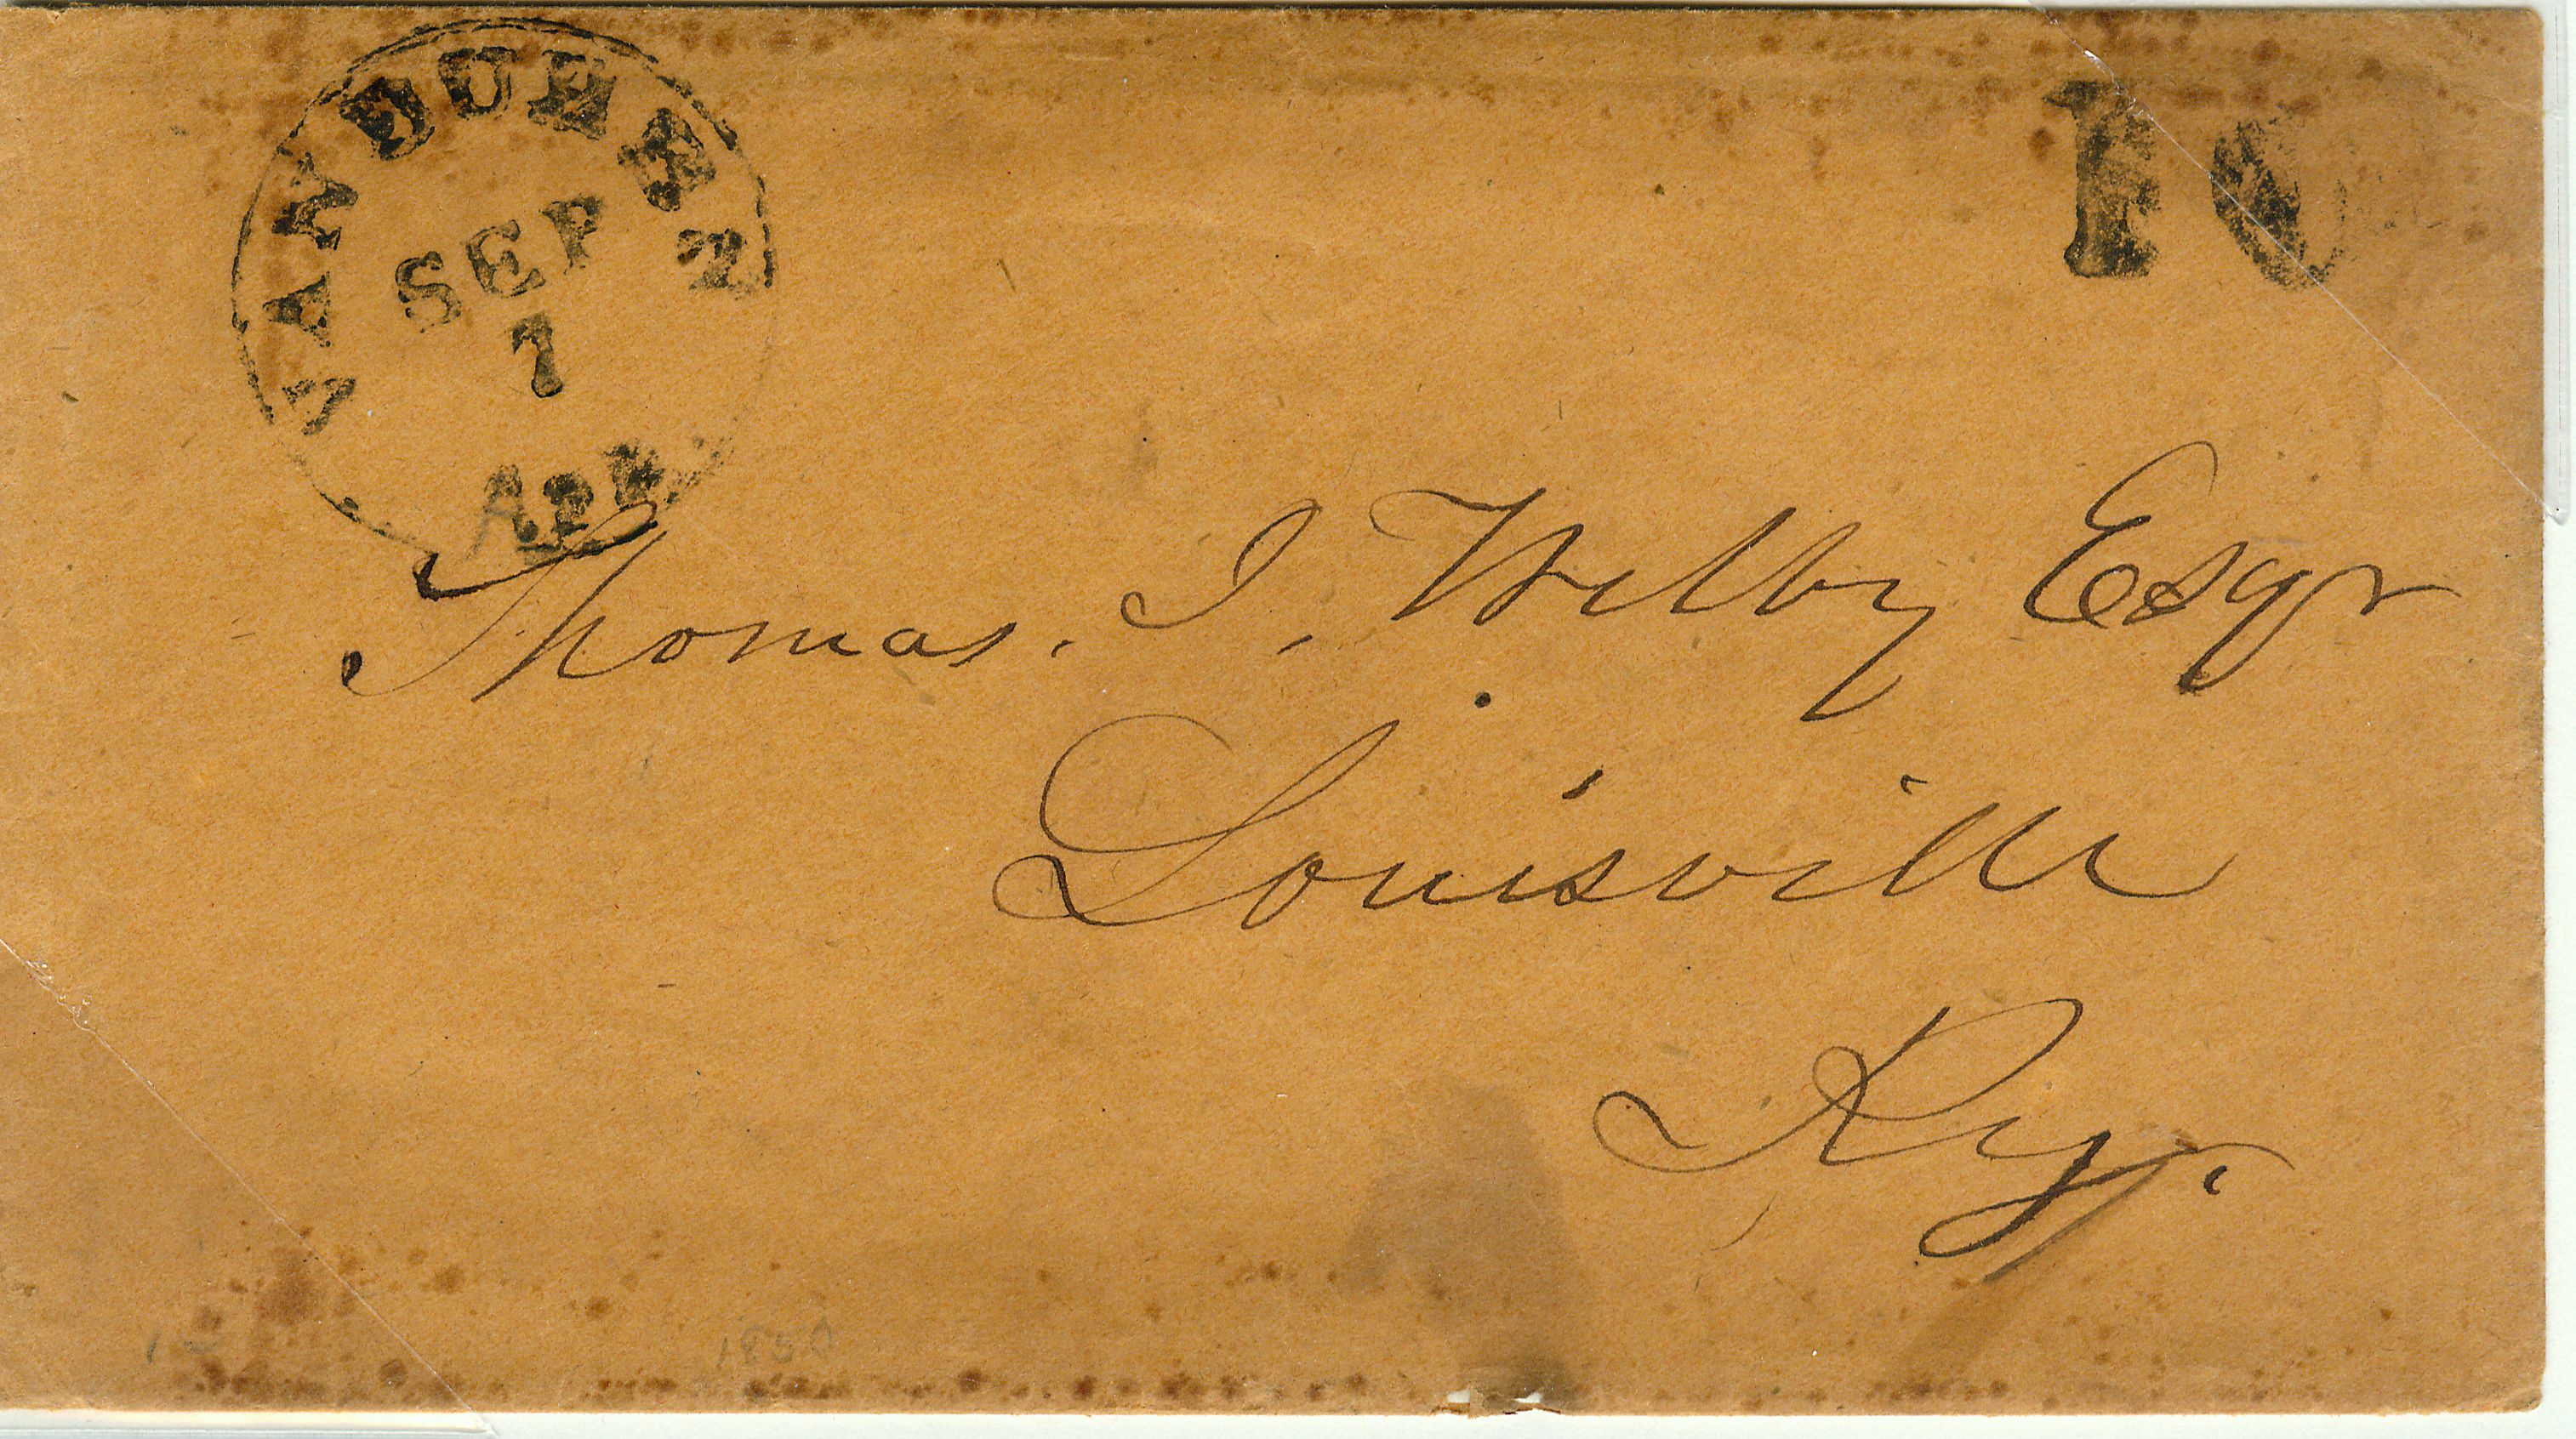 VAN BUREN
SEP
7
Ark.
10
Thomas. I. Welby Esqr
Louisville
Ky.
1850